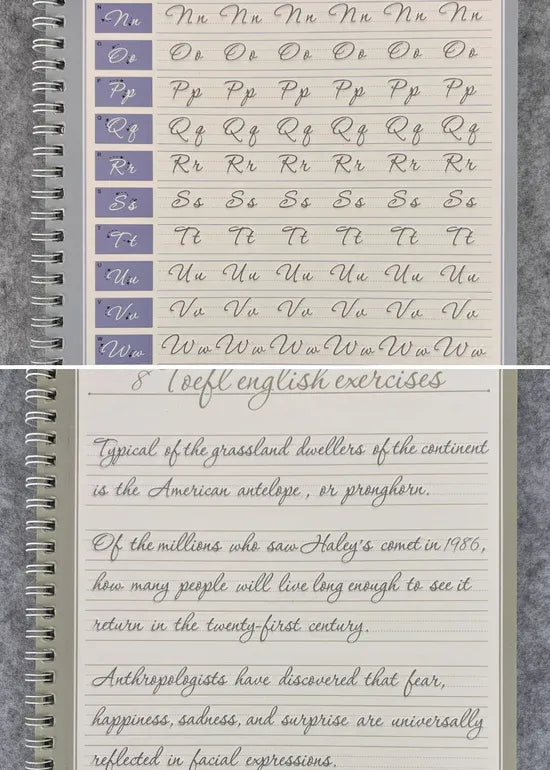 N Nn Nn Nn Nn Nn Nn Nn
O Oo Oo Oo Oo Oo Oo Oo
P Pp Pp Pp Pp Pp Pp Pp
Q Qq Qq Qq Qq Qq Qq Qq
R Rr Rr Rr Rr Rr Rr Rr
S Ss Ss Ss Ss Ss Ss Ss
T Tt Tt Tt Tt Tt Tt Tt
U Uu Uu Uu Uu Uu Uu Uu
V Vv Vv Vv Vv Vv Vv Vv
W Ww Ww Ww Ww Ww Ww Ww
8 Toefl english exercises
Typical of the grassland dwellers of the continent
is the American antelope, or pronghorn.
Of the millions who saw Haley's comet in 1986,
how many people will live long enough to see it
return in the twenty-first century.
Anthropologists have discovered that fear,
happiness, sadness, and surprise are universally
reflected in facial expressions.